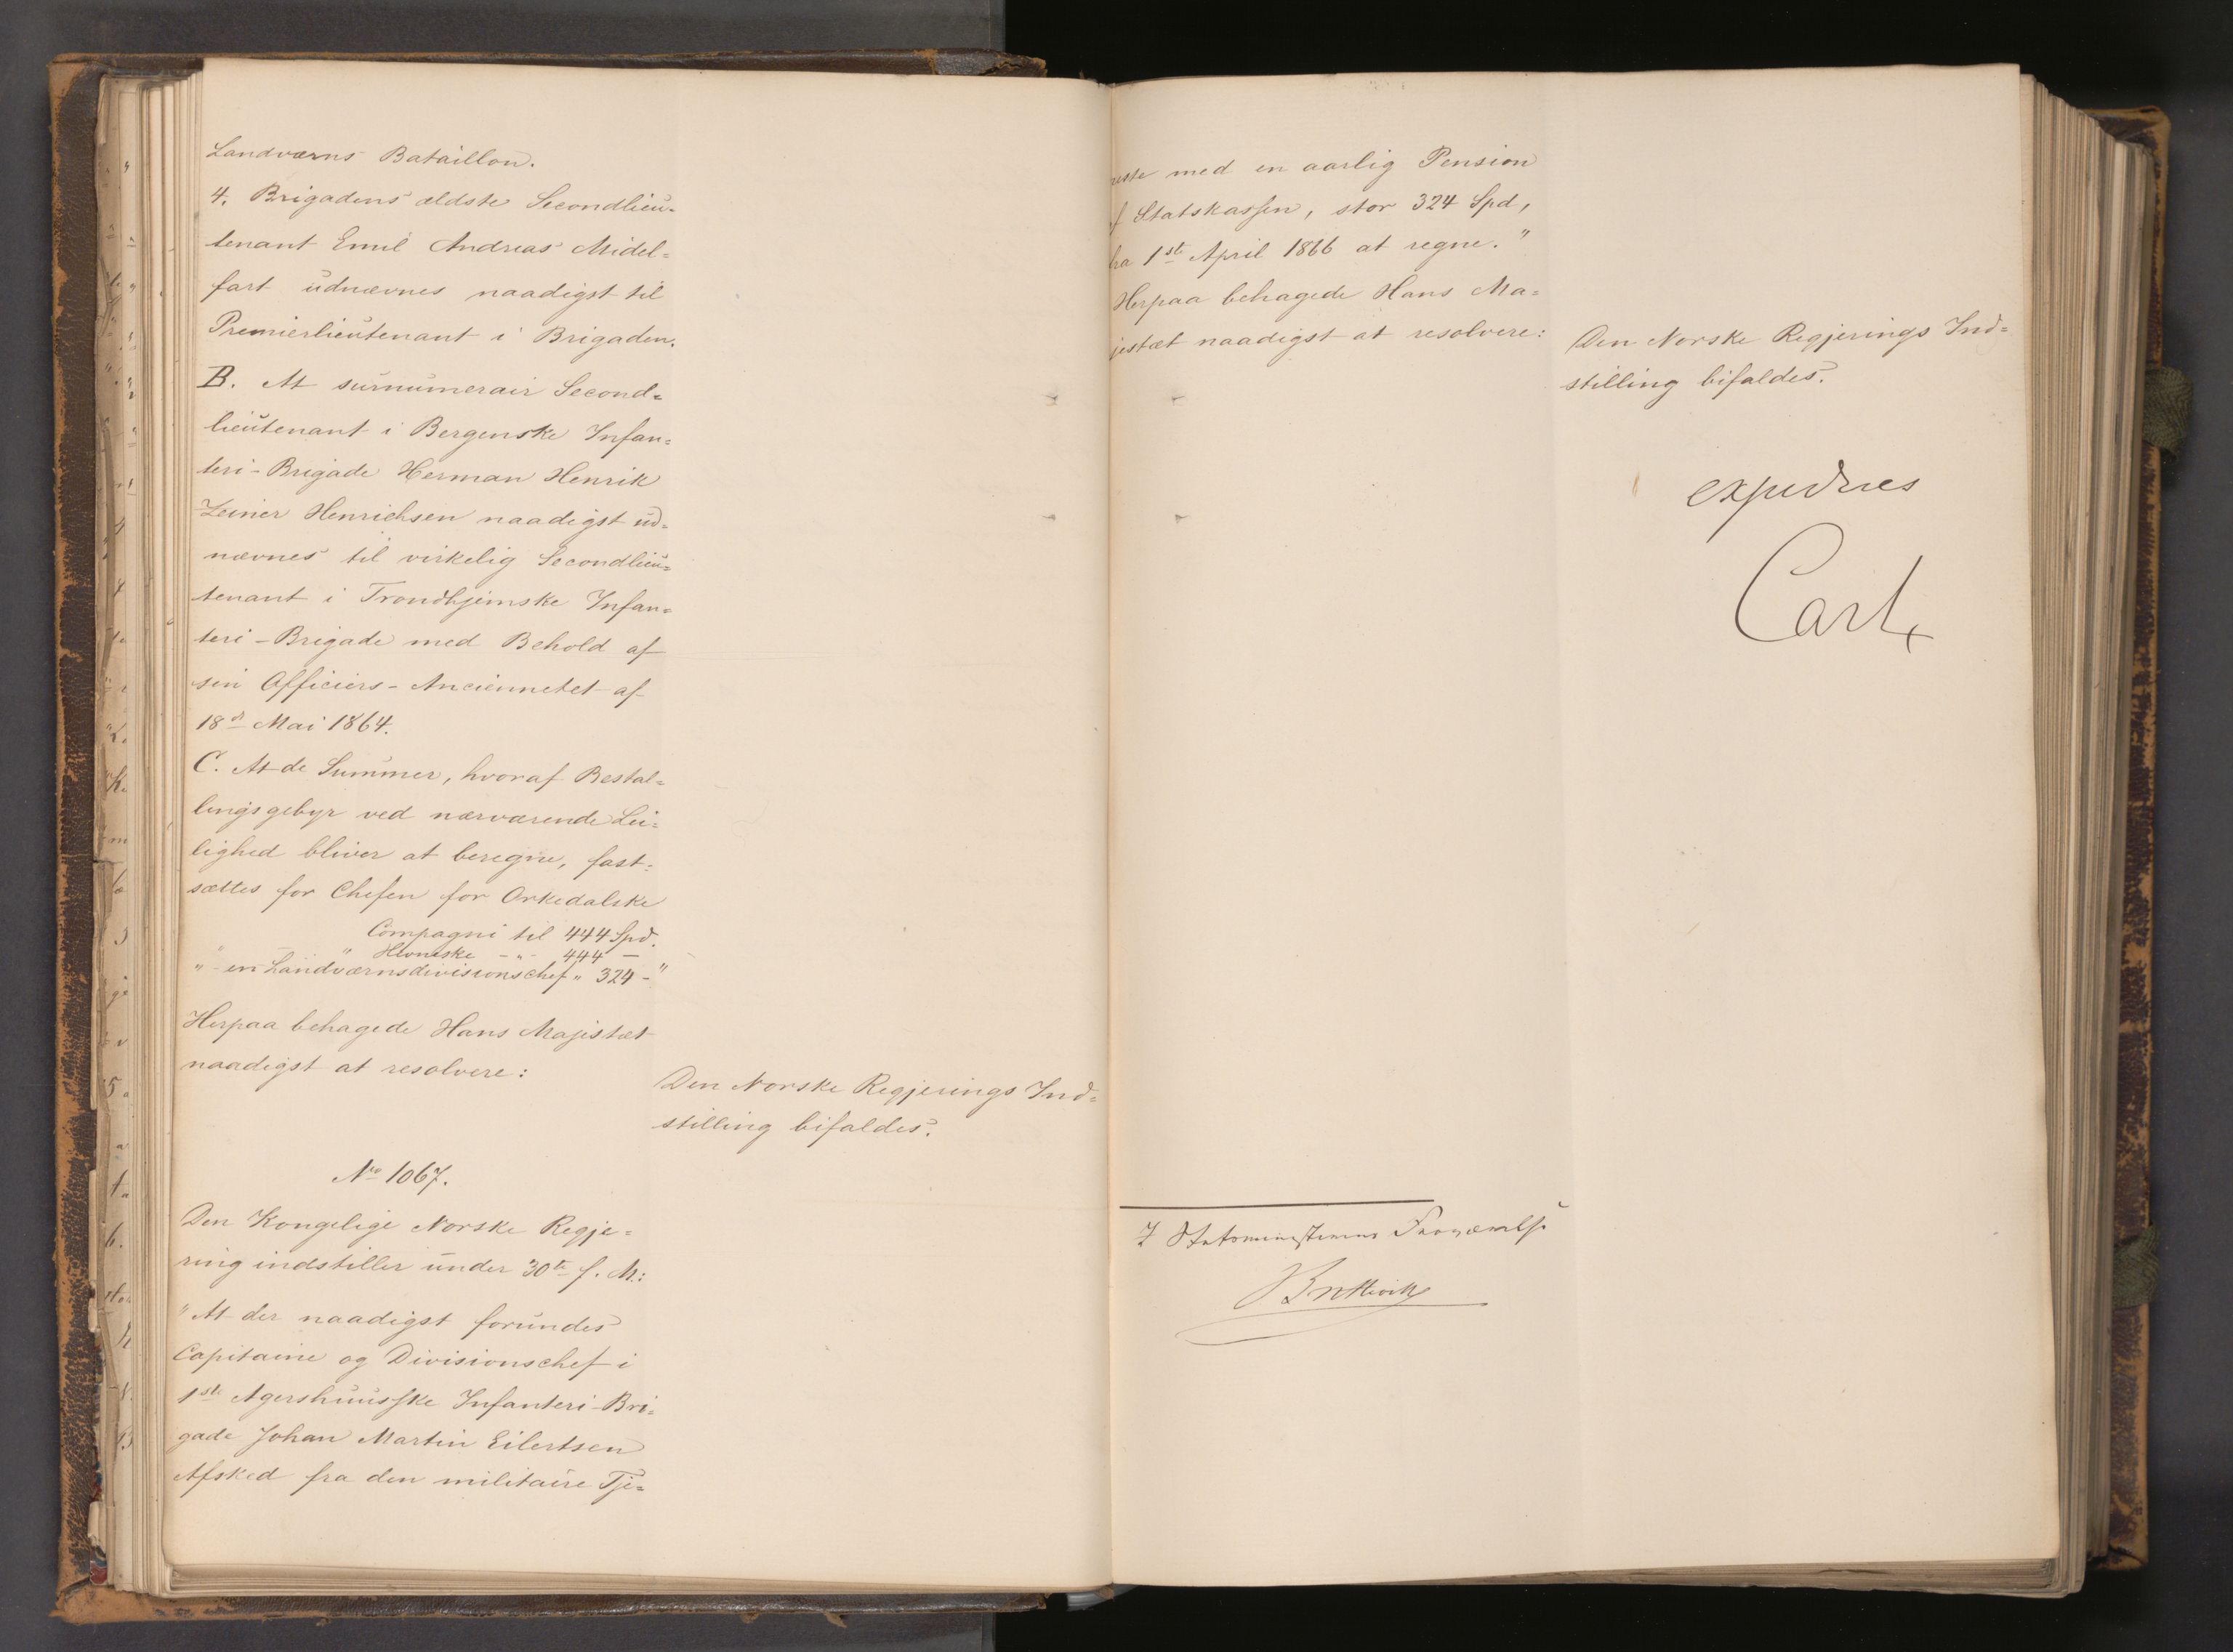 Landværns Bataillon.
4. Brigadens ældste Secondlieu=
tenant Emil Andreas Midel=
fart udnævnes naadigst til
Premierlieutenant i Brigaden.
B. At surnumerair Second=
lieutenant i Bergenske Infan=
teri-Brigade Herman Henrik
Zeiner Henrichsen naadigst ud=
nævnes til virkelig Secondlieu=
tenant i Trondhjemske Infan=
teri-Brigade med Behold af
sin Officiers-Anciennetet af
18de Mai 1864.
C. At de Summer, hvoraf Bestal=
lingsgebyr ved nærværende Lei=
lighed bliver at beregne, fast=
sættes for Chefen for Orkedalske
Compagni til 444 Spd.
" — " Hevneske -"- 444 —
" en Landværnsdivisionschef " 324 - "
Herpaa behagede Hans Majestæt
naadigst at resolvere:
Den Norske Regjerings Ind=
stilling bifaldes.
No 1067.
Den Kongelige Norske Regje=
ring indstiller under 30te f. M.:
"At der naadigst forundes
Capitaine og Divisionschef i
1ste Agershuusske Infanteri-Bri=
gade Johan Martin Eilertsen
Afsked fra den militaire Tje=
neste med en aarlig Pension
af Statskassen, stor 324 Spd,
fra 1ste April 1866 at regne."
Herpaa behagede Hans Ma=
jestæt naadigst at resolvere:
Den Norske Regjerings Ind=
stilling bifaldes.
expederes
Carl
I Statsministerens Fraværelse